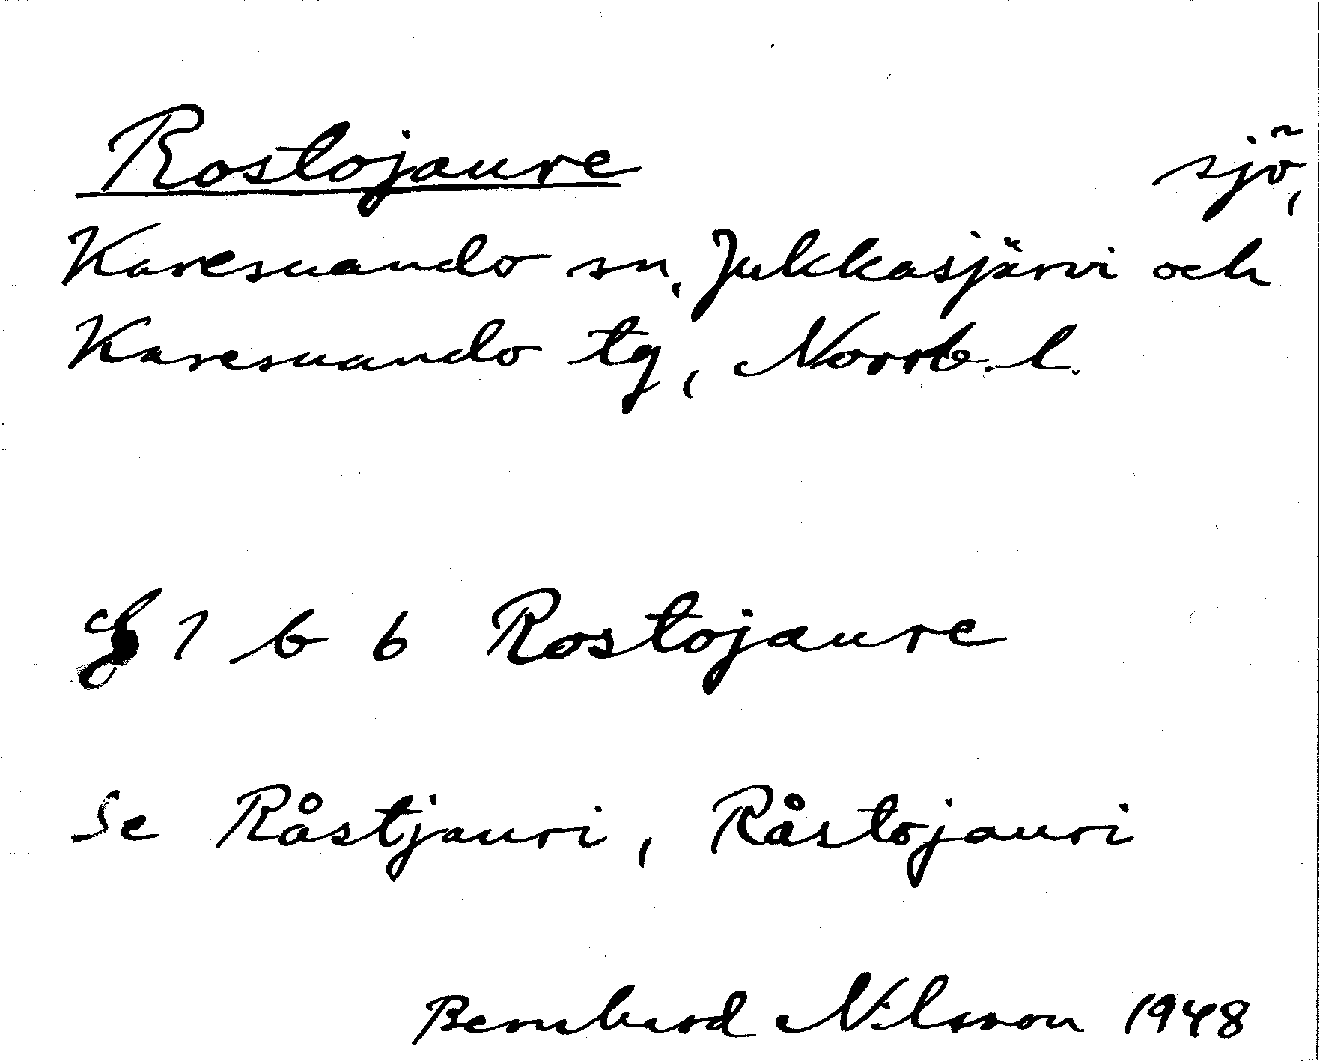 Rostojaure sjö,
Karesuando sn, Jukkasjärvi och
Karesuando tg, Norrb. l.
§ 1 b 6 Rostojaure
Se Råstjauri, Råstojauri
Bernhard Nilsson 1948